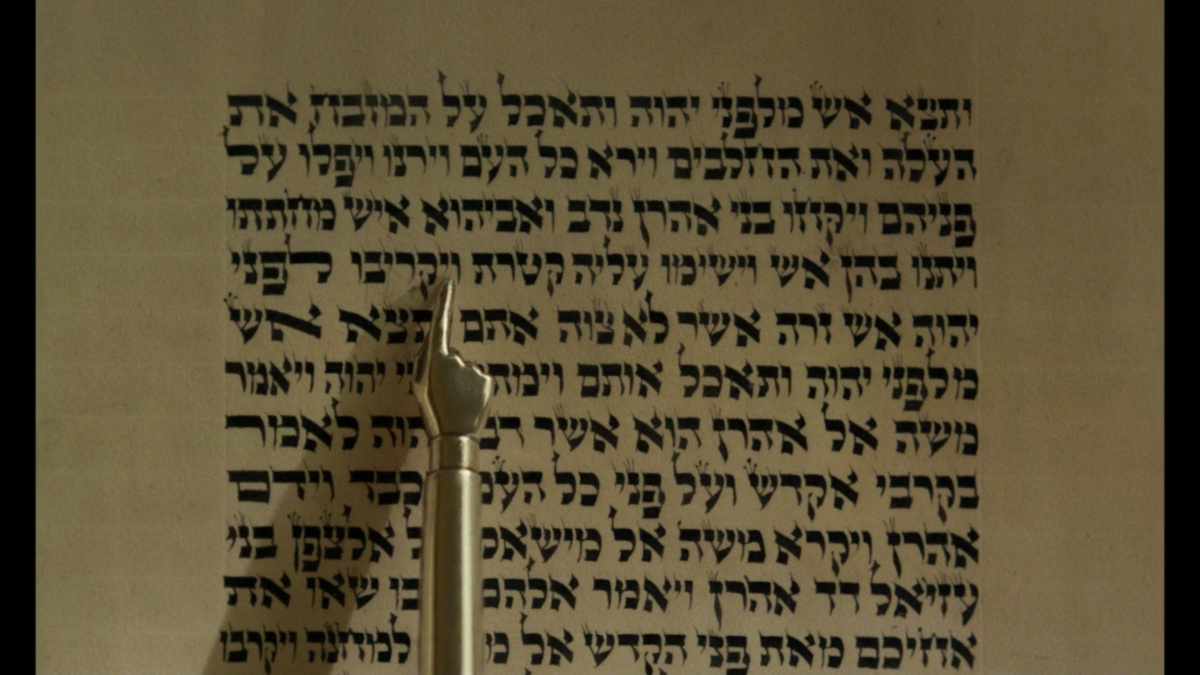 ותצא אש מלפני יהוה ותאכל על המזבח את
העלה ואת החלבים וירא כל העם וירנו ויפלו על
פניהם ויקחו בני אהרן נדב ואביהוא איש מחתתו
ויתנו בהן אש וישימו עליה קטרת ויקריבו לפני
יהוה אש זרה אשר לא צוה אתם תצא אש
מלפני יהוה ותאכל אותם יהוה ויאמר
משה אל אהרן הוא אשר לאמר
בקרבי אקדש ועל פני כל העם וידם
אהרן ויקרא משה אל מישאל אלצפן בני
עזיאל דד אהרן ויאמר אלהם שאו את
אחיכם מאת פני הקדש אל למחנה ויקרבו